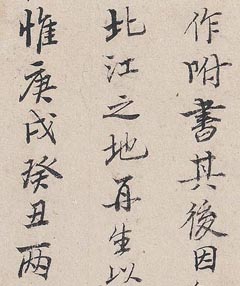 作附書其後因
北江之地再生以
惟庚戌癸丑两